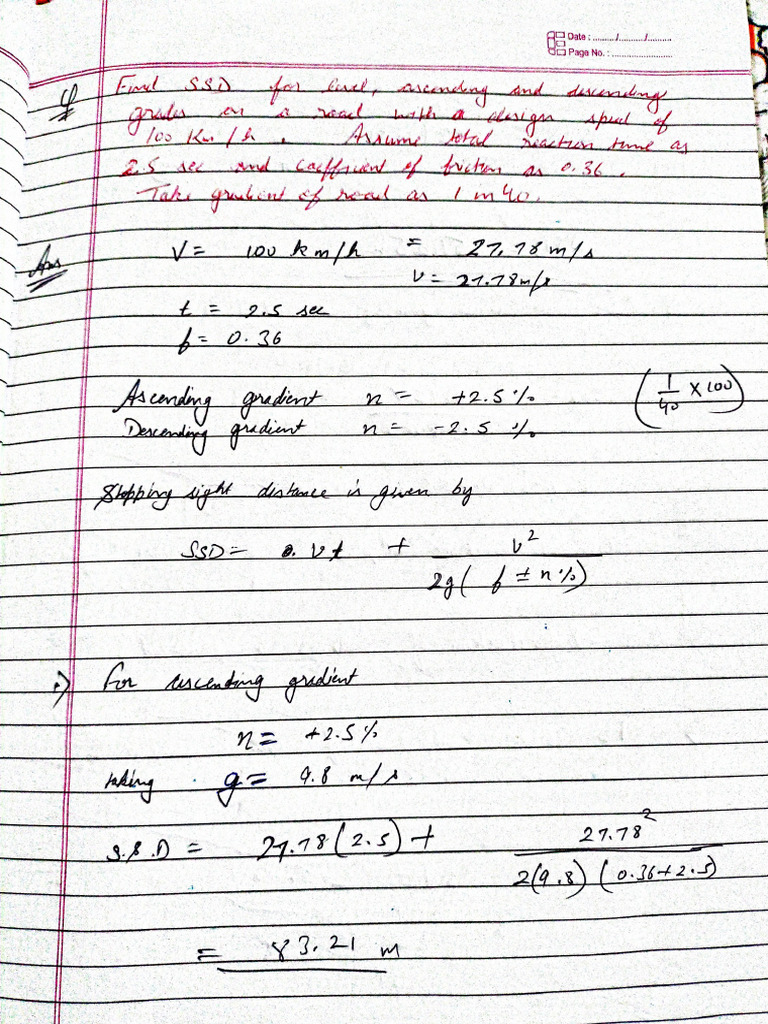 Date : ......../........./.........
Page No. : ........................
Q Find SSD for level, ascending and descending
grades on a road with a design speed of
100 Km/h. Assume total reaction time as
2.5 sec and coefficient of friction as 0.36.
Take gradient of road as 1 in 40.
Ans V = 100 km/h = 27.78 m/s
v = 27.78 m/s
t = 2.5 sec
f = 0.36
Ascending gradient n = +2.5% (1/40 × 100)
Descending gradient n = -2.5 %
Stopping sight distance is given by
SSD = vt + v²/2g( f ± n%)
For ascending gradient
n = +2.5%
taking g = 9.8 m/s
S.S.D = 27.78(2.5) + 27.78²/2(9.8) (0.36+2.5)
= 83.21 m